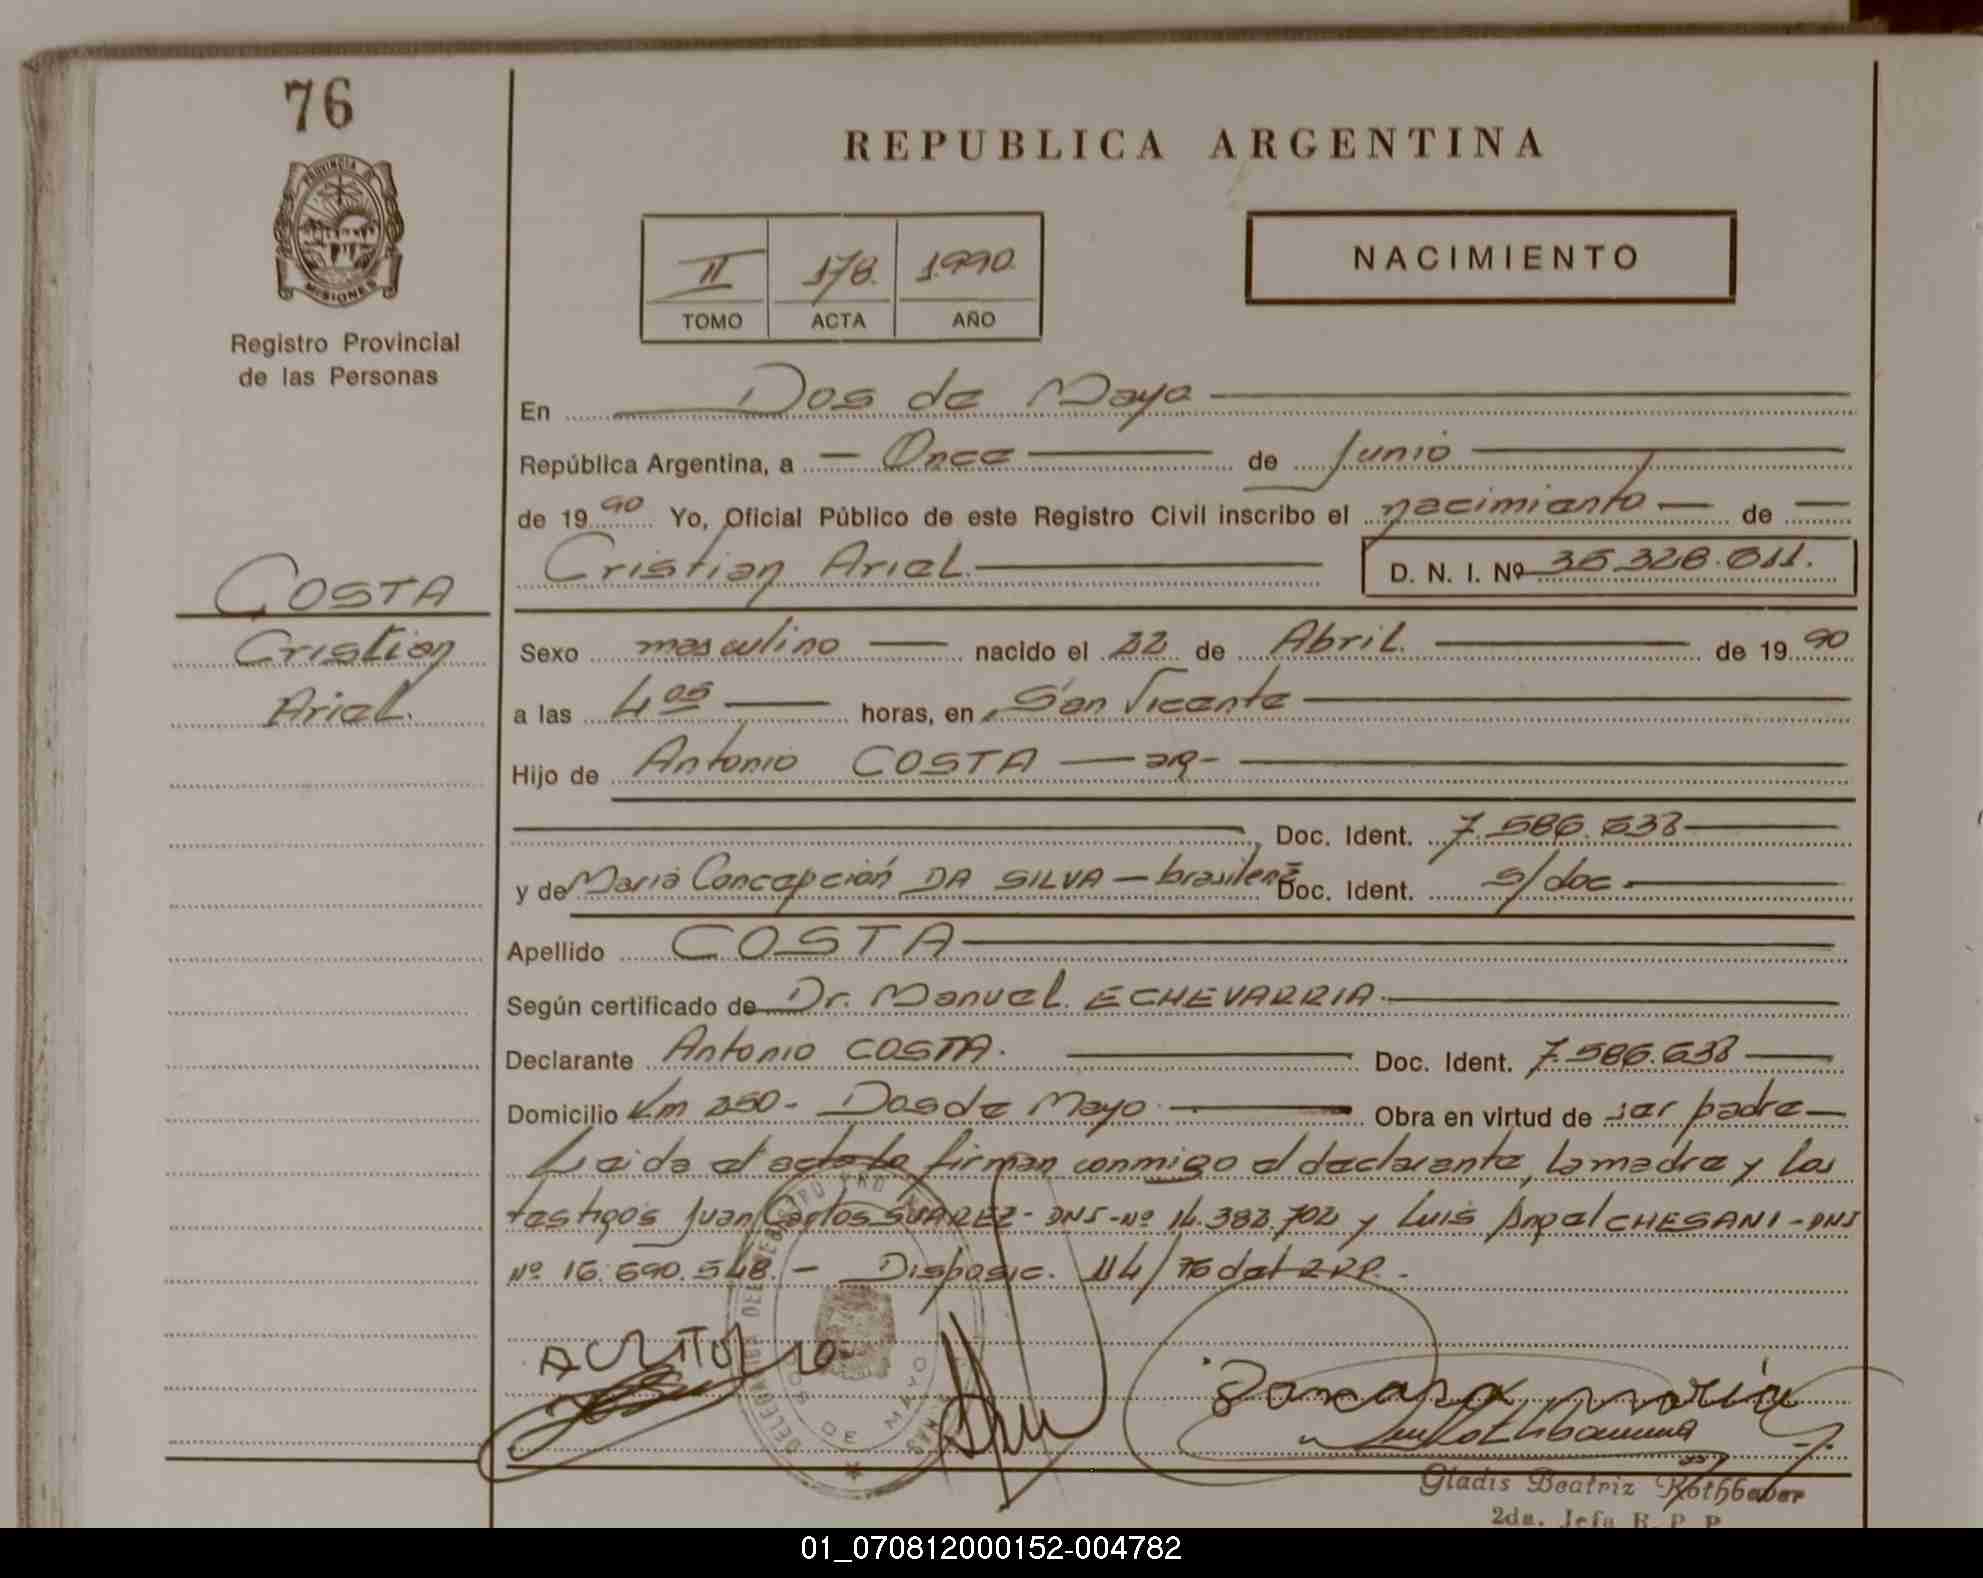 76
REPUBLICA ARGENTINA
PROVINCIA DE
MISIONES
Registro Provincial
de las Personas
II 178. 1.990.
TOMO ACTA AÑO
NACIMIENTO
En Dos de Mayo
República Argentina, a Once de Junio
de 1990 Yo, Oficial Público de este Registro Civil inscribo el nacimiento de
Cristian Ariel. D. N. I. Nº 35.328.011.
COSTA
Cristian
Ariel.
Sexo masculino nacido el 22 de Abril. de 1990
a las 4 05 horas, en San Vicente
Hijo de Antonio COSTA — arg-
Doc. Ident. 7.586.638
y de Maria Concepción DA SILVA — brasileña Doc. Ident. s/doc
Apellido COSTA
Según certificado de Dr. Manuel ECHEVARRIA.
Declarante Antonio COSTA. Doc. Ident. 7.586.638
Domicilio Km 250- Dos de Mayo Obra en virtud de ser padre
Leida el acta la firman conmigo el declarante, la madre y los
testigos Juan Carlos SUAREZ- DNI-Nº 14.383.702 y Luis Angel CHESANI-DNI
Nº 16.690.548.- Disposic. 114/76 del RRP.-
DOS DE MAYO
Gladis Beatriz Rothbauer
2da. Jefa R. P. P.
01_070812000152-004782